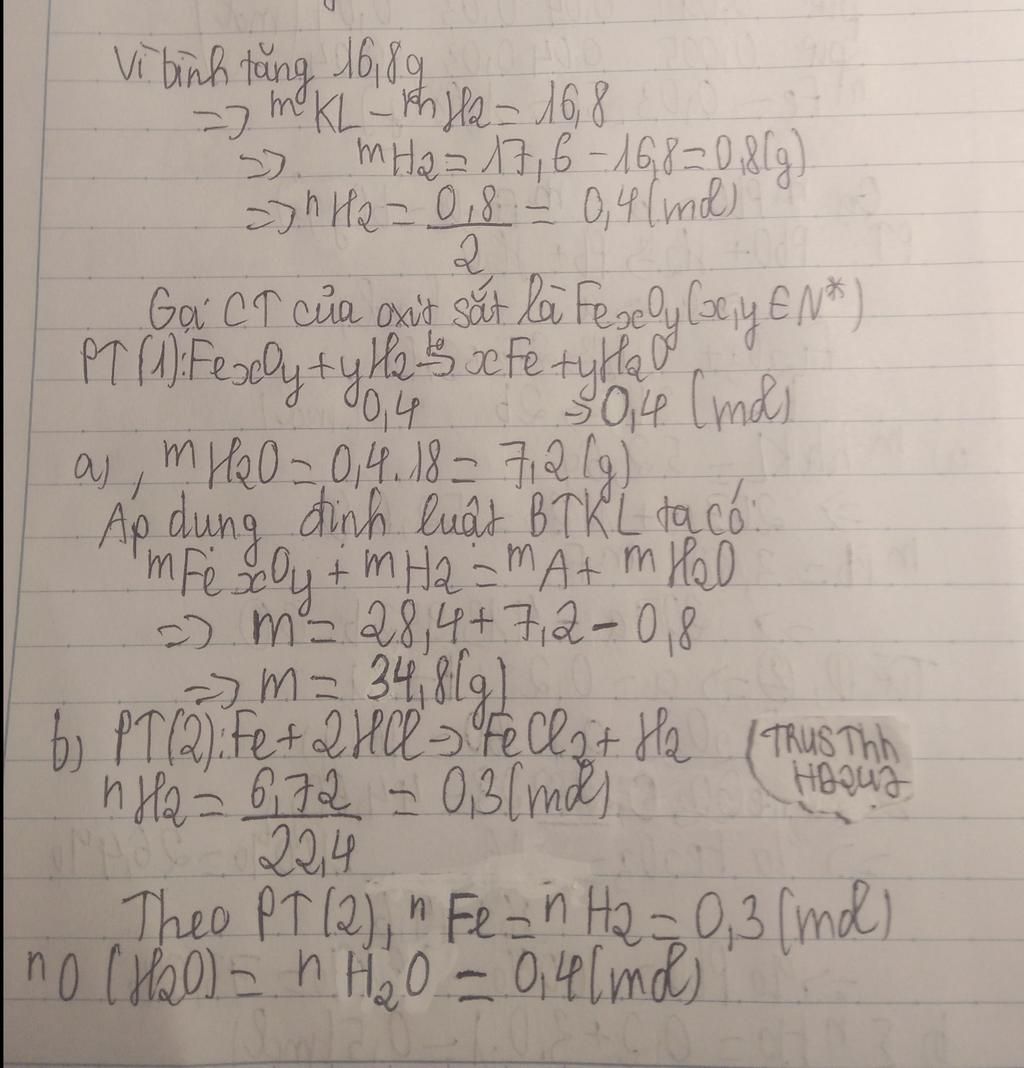 Vì bình tăng 16,8g
=> mKL - mH2 = 16,8
=> mH2 = 17,6 - 16,8 = 0,8(g)
=> nH2 = 0,8/2 = 0,4(mol)
Gọi CT của oxit sắt là FexOy(x,y ∈ N*)
PT(1): FexOy + yH2 -to-> xFe + yH2O
0,4 -> 0,4 (mol)
a), mH2O = 0,4.18 = 7,2(g)
Áp dụng định luật BTKL ta có:
mFexOy + mH2 = mA + mH2O
=> m = 28,4 + 7,2 - 0,8
=> m = 34,8(g)
b) PT(2): Fe + 2HCl -> FeCl2 + H2
(TRUSThh
HB2U2
nH2 = 6,72/22,4 = 0,3(mol)
Theo PT(2), nFe = nH2 = 0,3(mol)
nO(H2O) = nH2O = 0,4(mol)